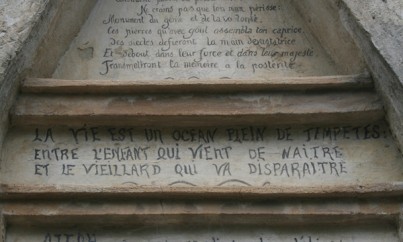 Ne crains pas que ton nom périsse:
Monument du génie et de la volonté,
Les pierres qu'avec goût assembla ton caprice
Des siècles défieront la main dévastatrice
Et debout dans leur force et dans leur majesté
Transmettront ta mémoire à la postérité
LA VIE EST UN OCEAN PLEIN DE TEMPETES:
ENTRE L'ENFANT QUI VIENT DE NAITRE
ET LE VIEILLARD QUI VA DISPARAITRE